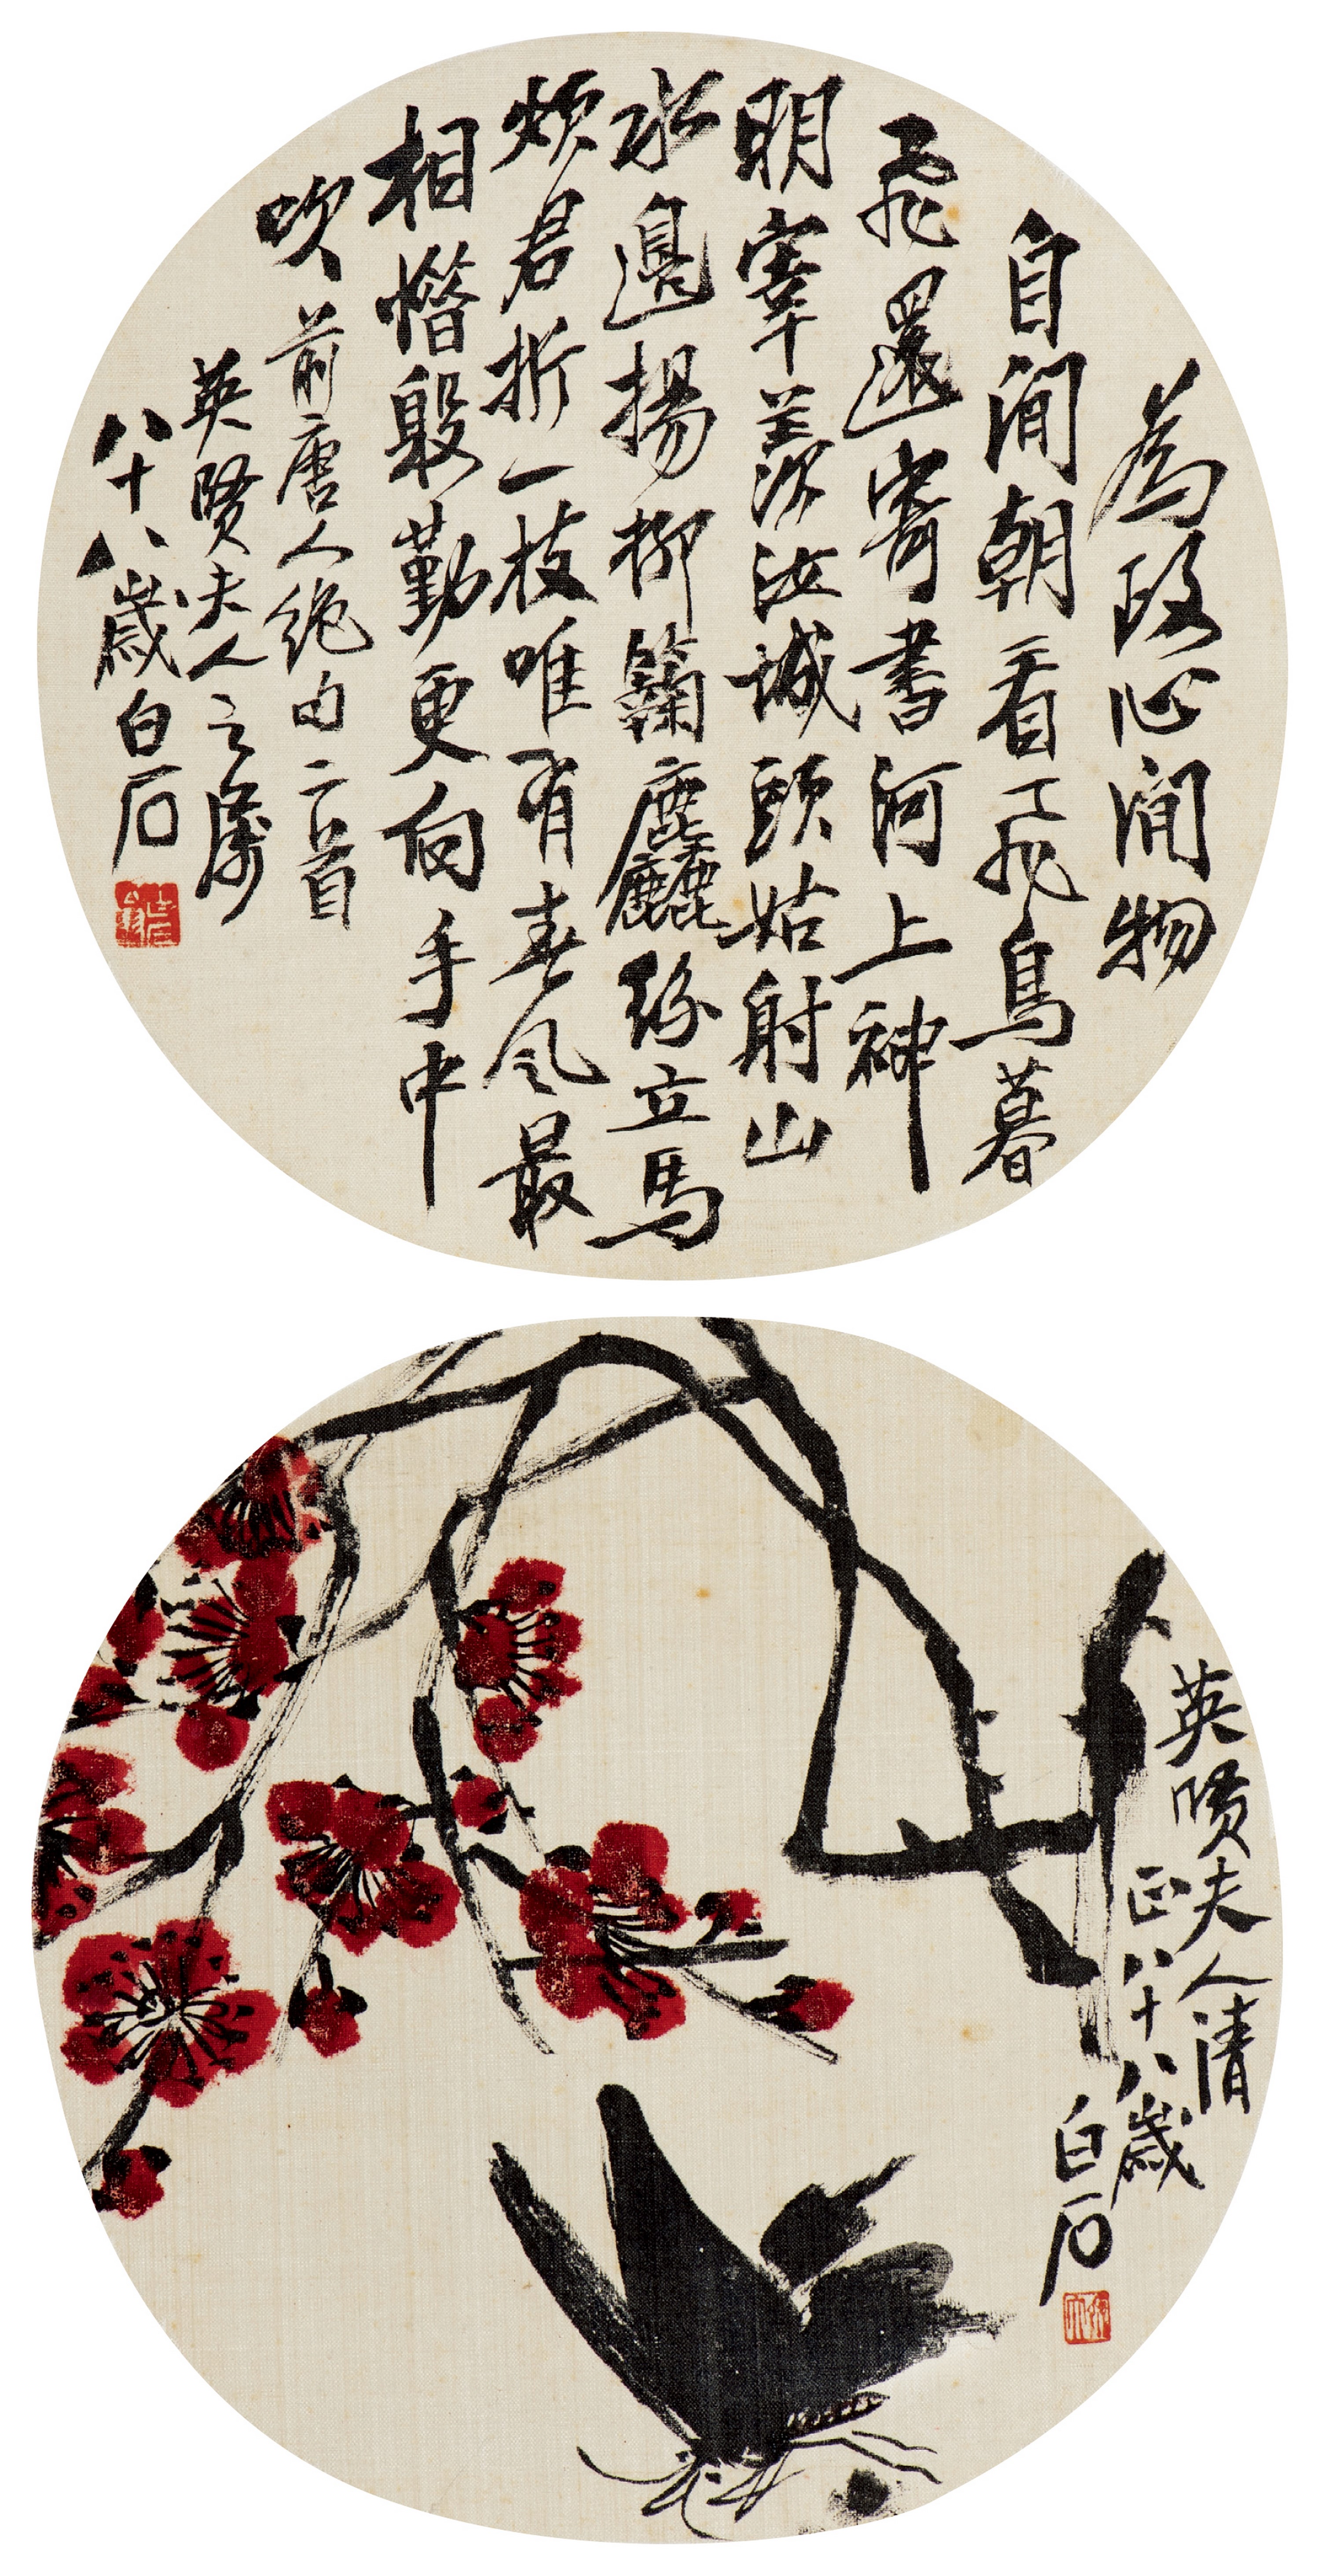 為政心閒物
自閒朝看飛鳥暮
飛還寄書河上神
明宰羡汝城頭姑射山
水邊楊柳麴塵絲立馬
煩君折一枝唯有春風最
相惜殷勤更向手中
吹 前唐人絕句二首
英賢夫人之屬
八十八歲白石
英賢夫人清
正八十八歲
白石